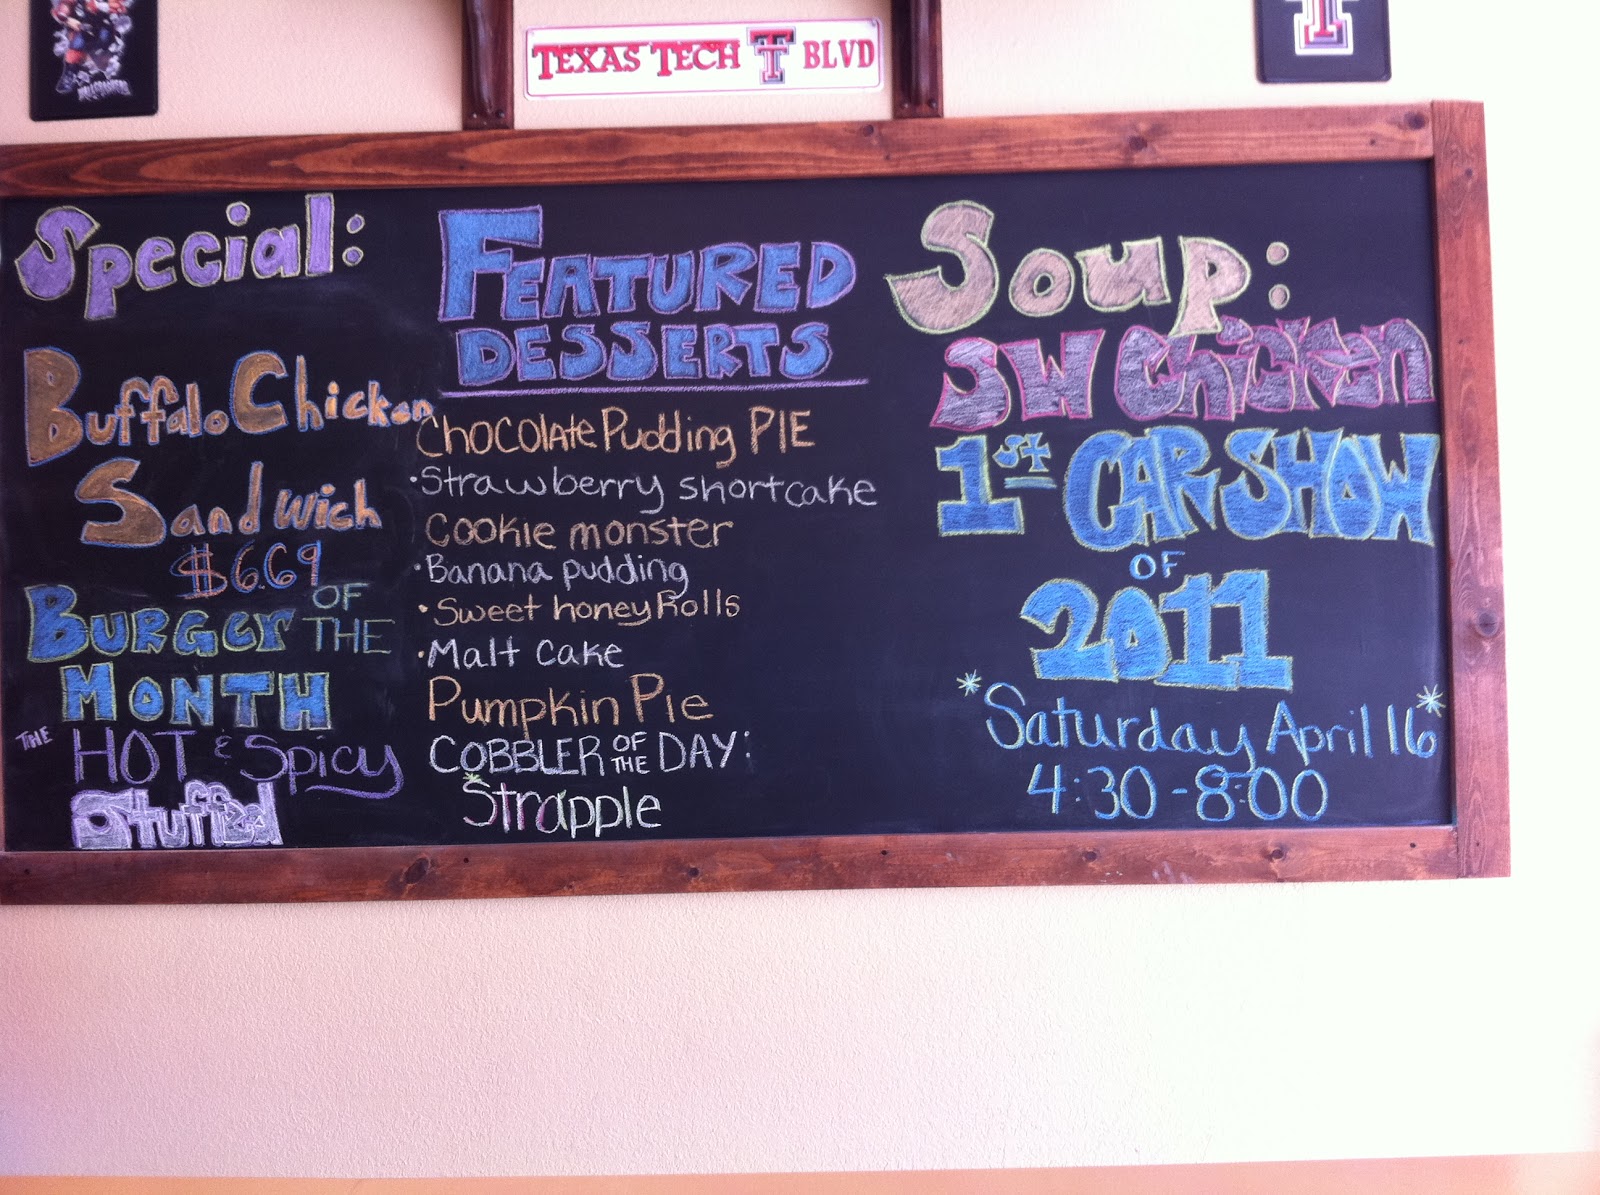 TEXAS TECH T BLVD
T
Special:
Buffalo Chicken
Sandwich
$6.69
BURGER OF THE
MONTH
THE HOT & Spicy
Stuffed
FEATURED
DESSERTS
Chocolate Pudding PIE
·Strawberry shortcake
Cookie monster
·Banana pudding
·Sweet honey Rolls
·Malt Cake
Pumpkin Pie
COBBLER OF THE DAY:
*Strapple
Soup:
SW Chicken
1st CAR SHOW
OF
2011
*Saturday April 16*
4:30-8:00